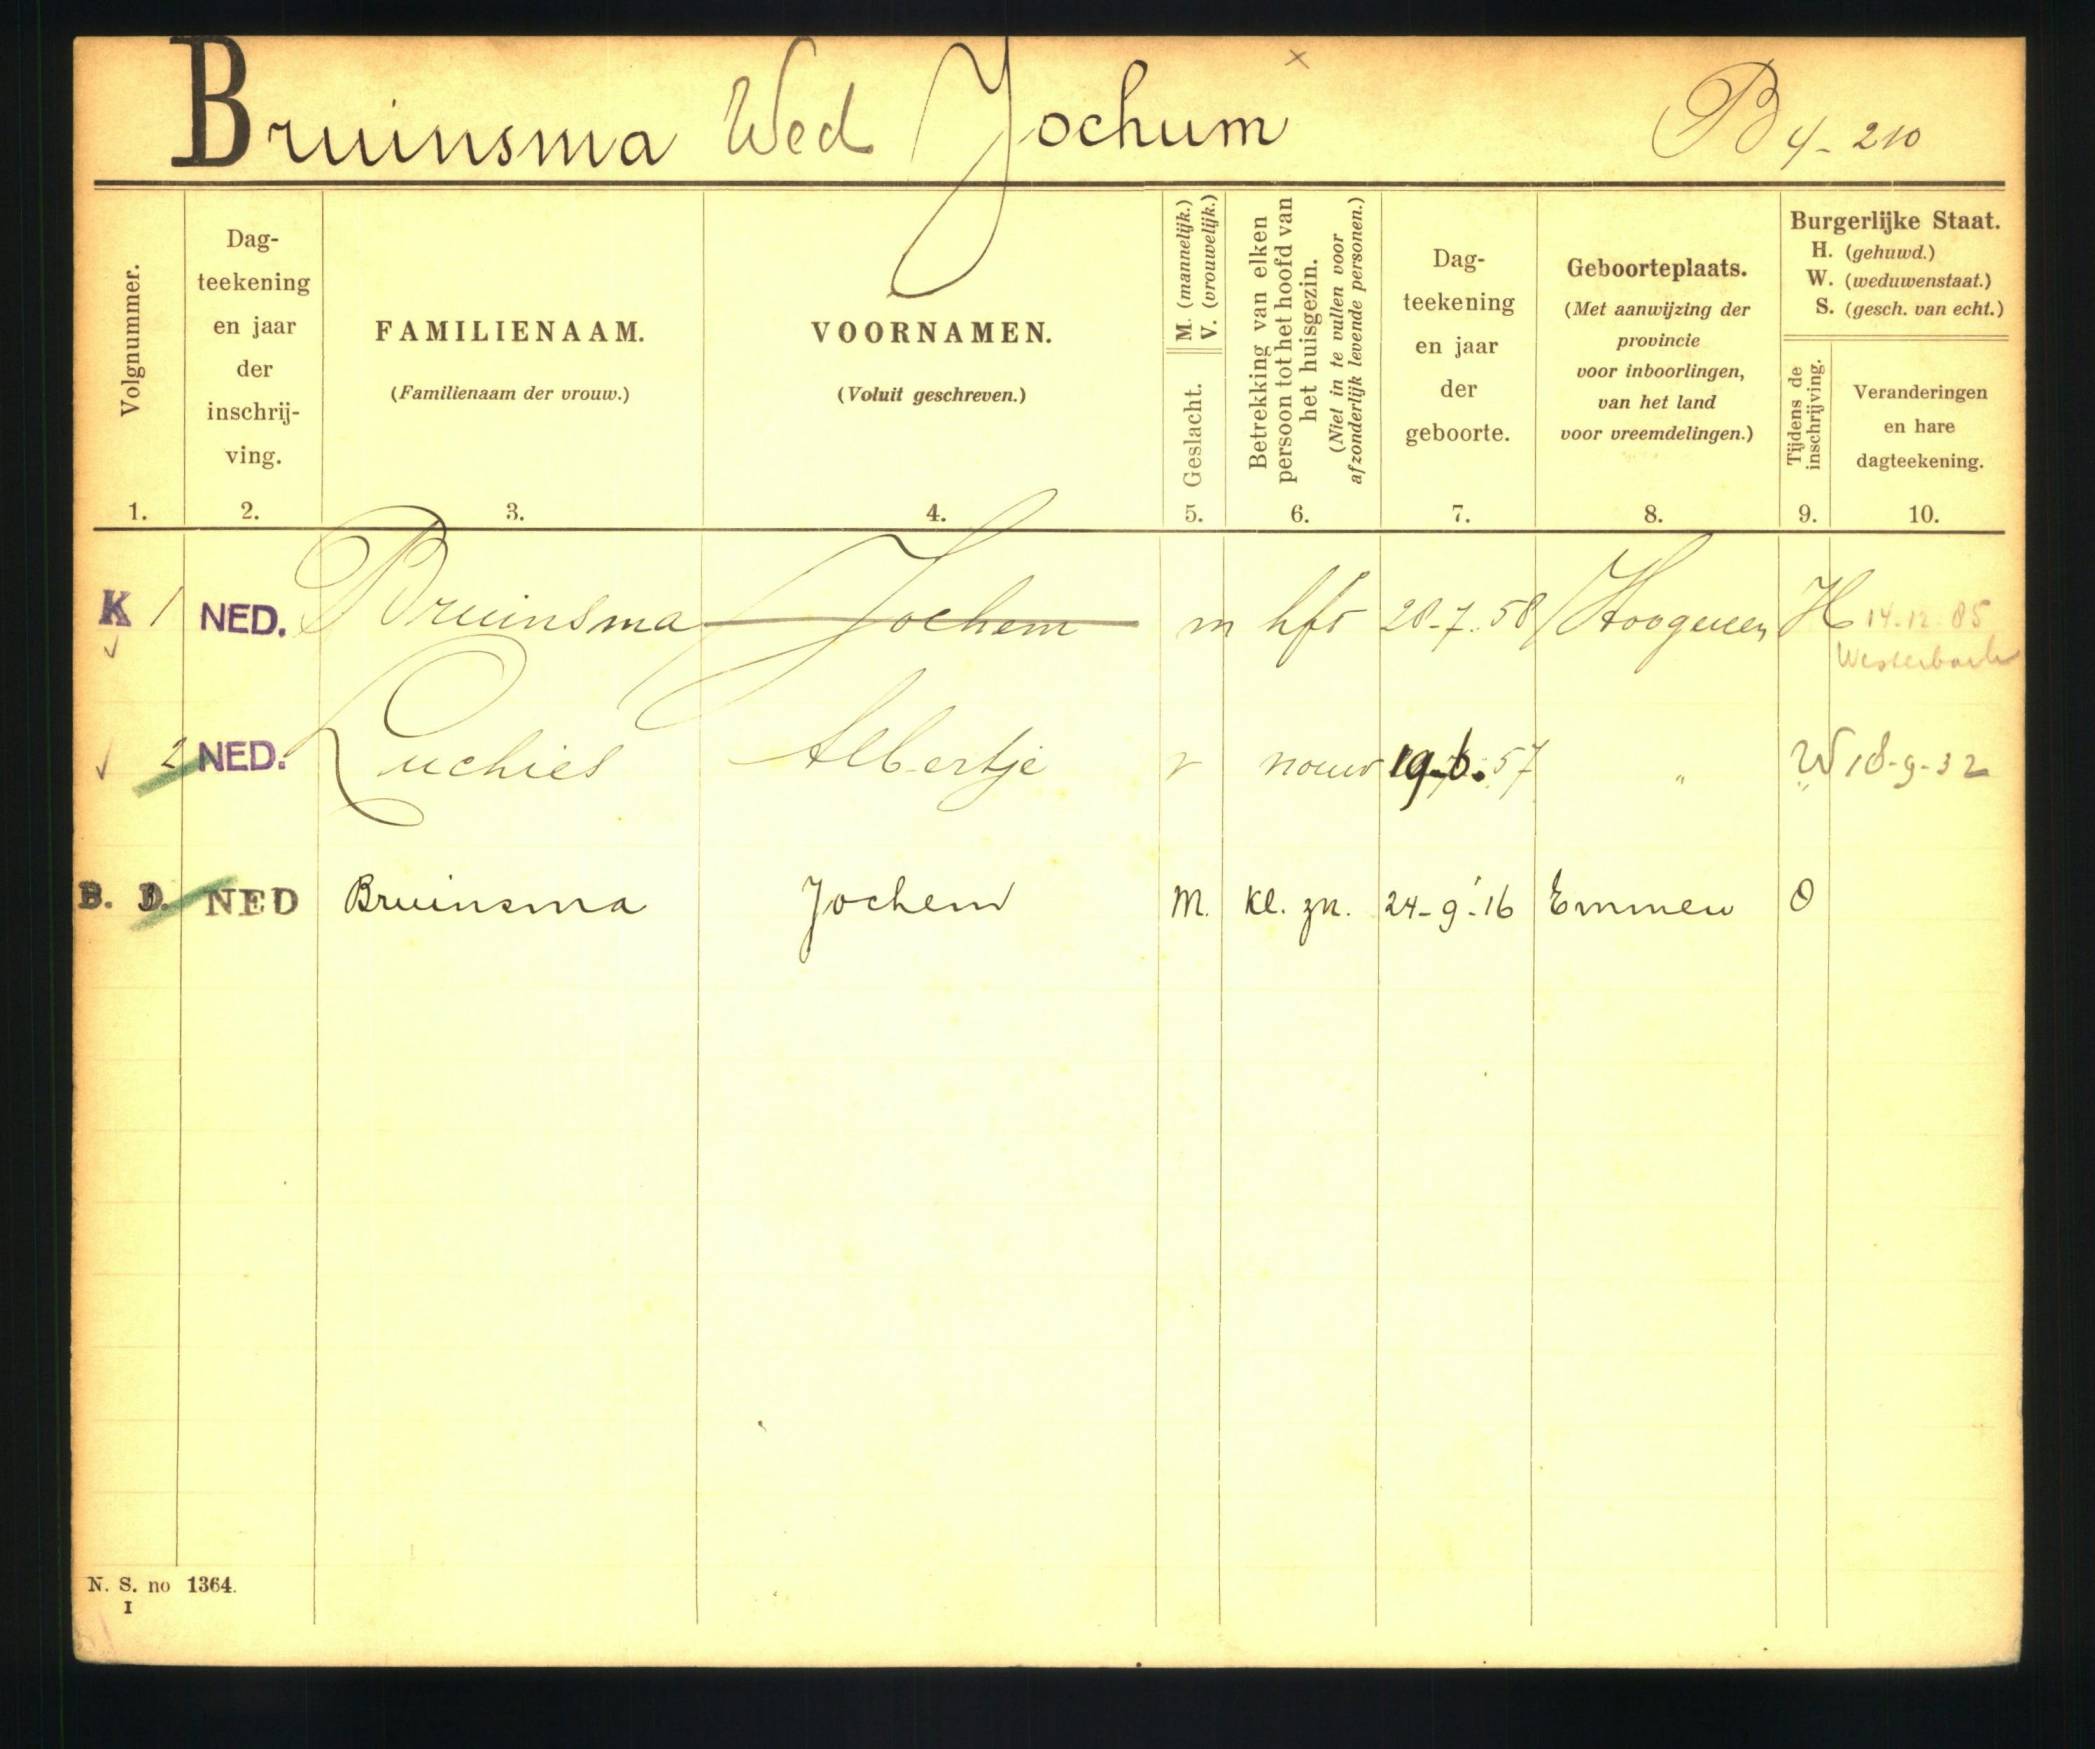 Bruinsma Wed Jochum × B 4-210
Volgnummer.
1.
Dag-
teekening
en jaar
der
inschrij-
ving.
2.
FAMILIENAAM.
(Familienaam der vrouw.)
3.
VOORNAMEN.
(Voluit geschreven.)
4.
M. (mannelijk.)
V. (vrouwelijk.)
Geslacht.
5.
Betrekking van elken
persoon tot het hoofd van
het huisgezin.
(Niet in te vullen voor
afzonderlijk levende personen.)
6.
Dag-
teekening
en jaar
der
geboorte.
7.
Geboorteplaats.
(Met aanwijzing der
provincie
voor inboorlingen,
van het land
voor vreemdelingen.)
8.
Burgerlijke Staat.
H. (gehuwd.)
W. (weduwenstaat.)
S. (gesch. van echt.)
Tijdens de
inschrijving.
9.
Veranderingen
en hare
dagteekening.
10.
K 1 NED. Bruinsma Jochem m hfd 28-7-58 Hoogeveen H 14-12-85
Westerbork
2 NED. Luchies Albertje v vrouw 19-6.57 " W 18-9-32
B. D. NED Bruinsma Jochem M. kl. zn. 24-9-'16 Emmen O
N. S. no 1364.
I